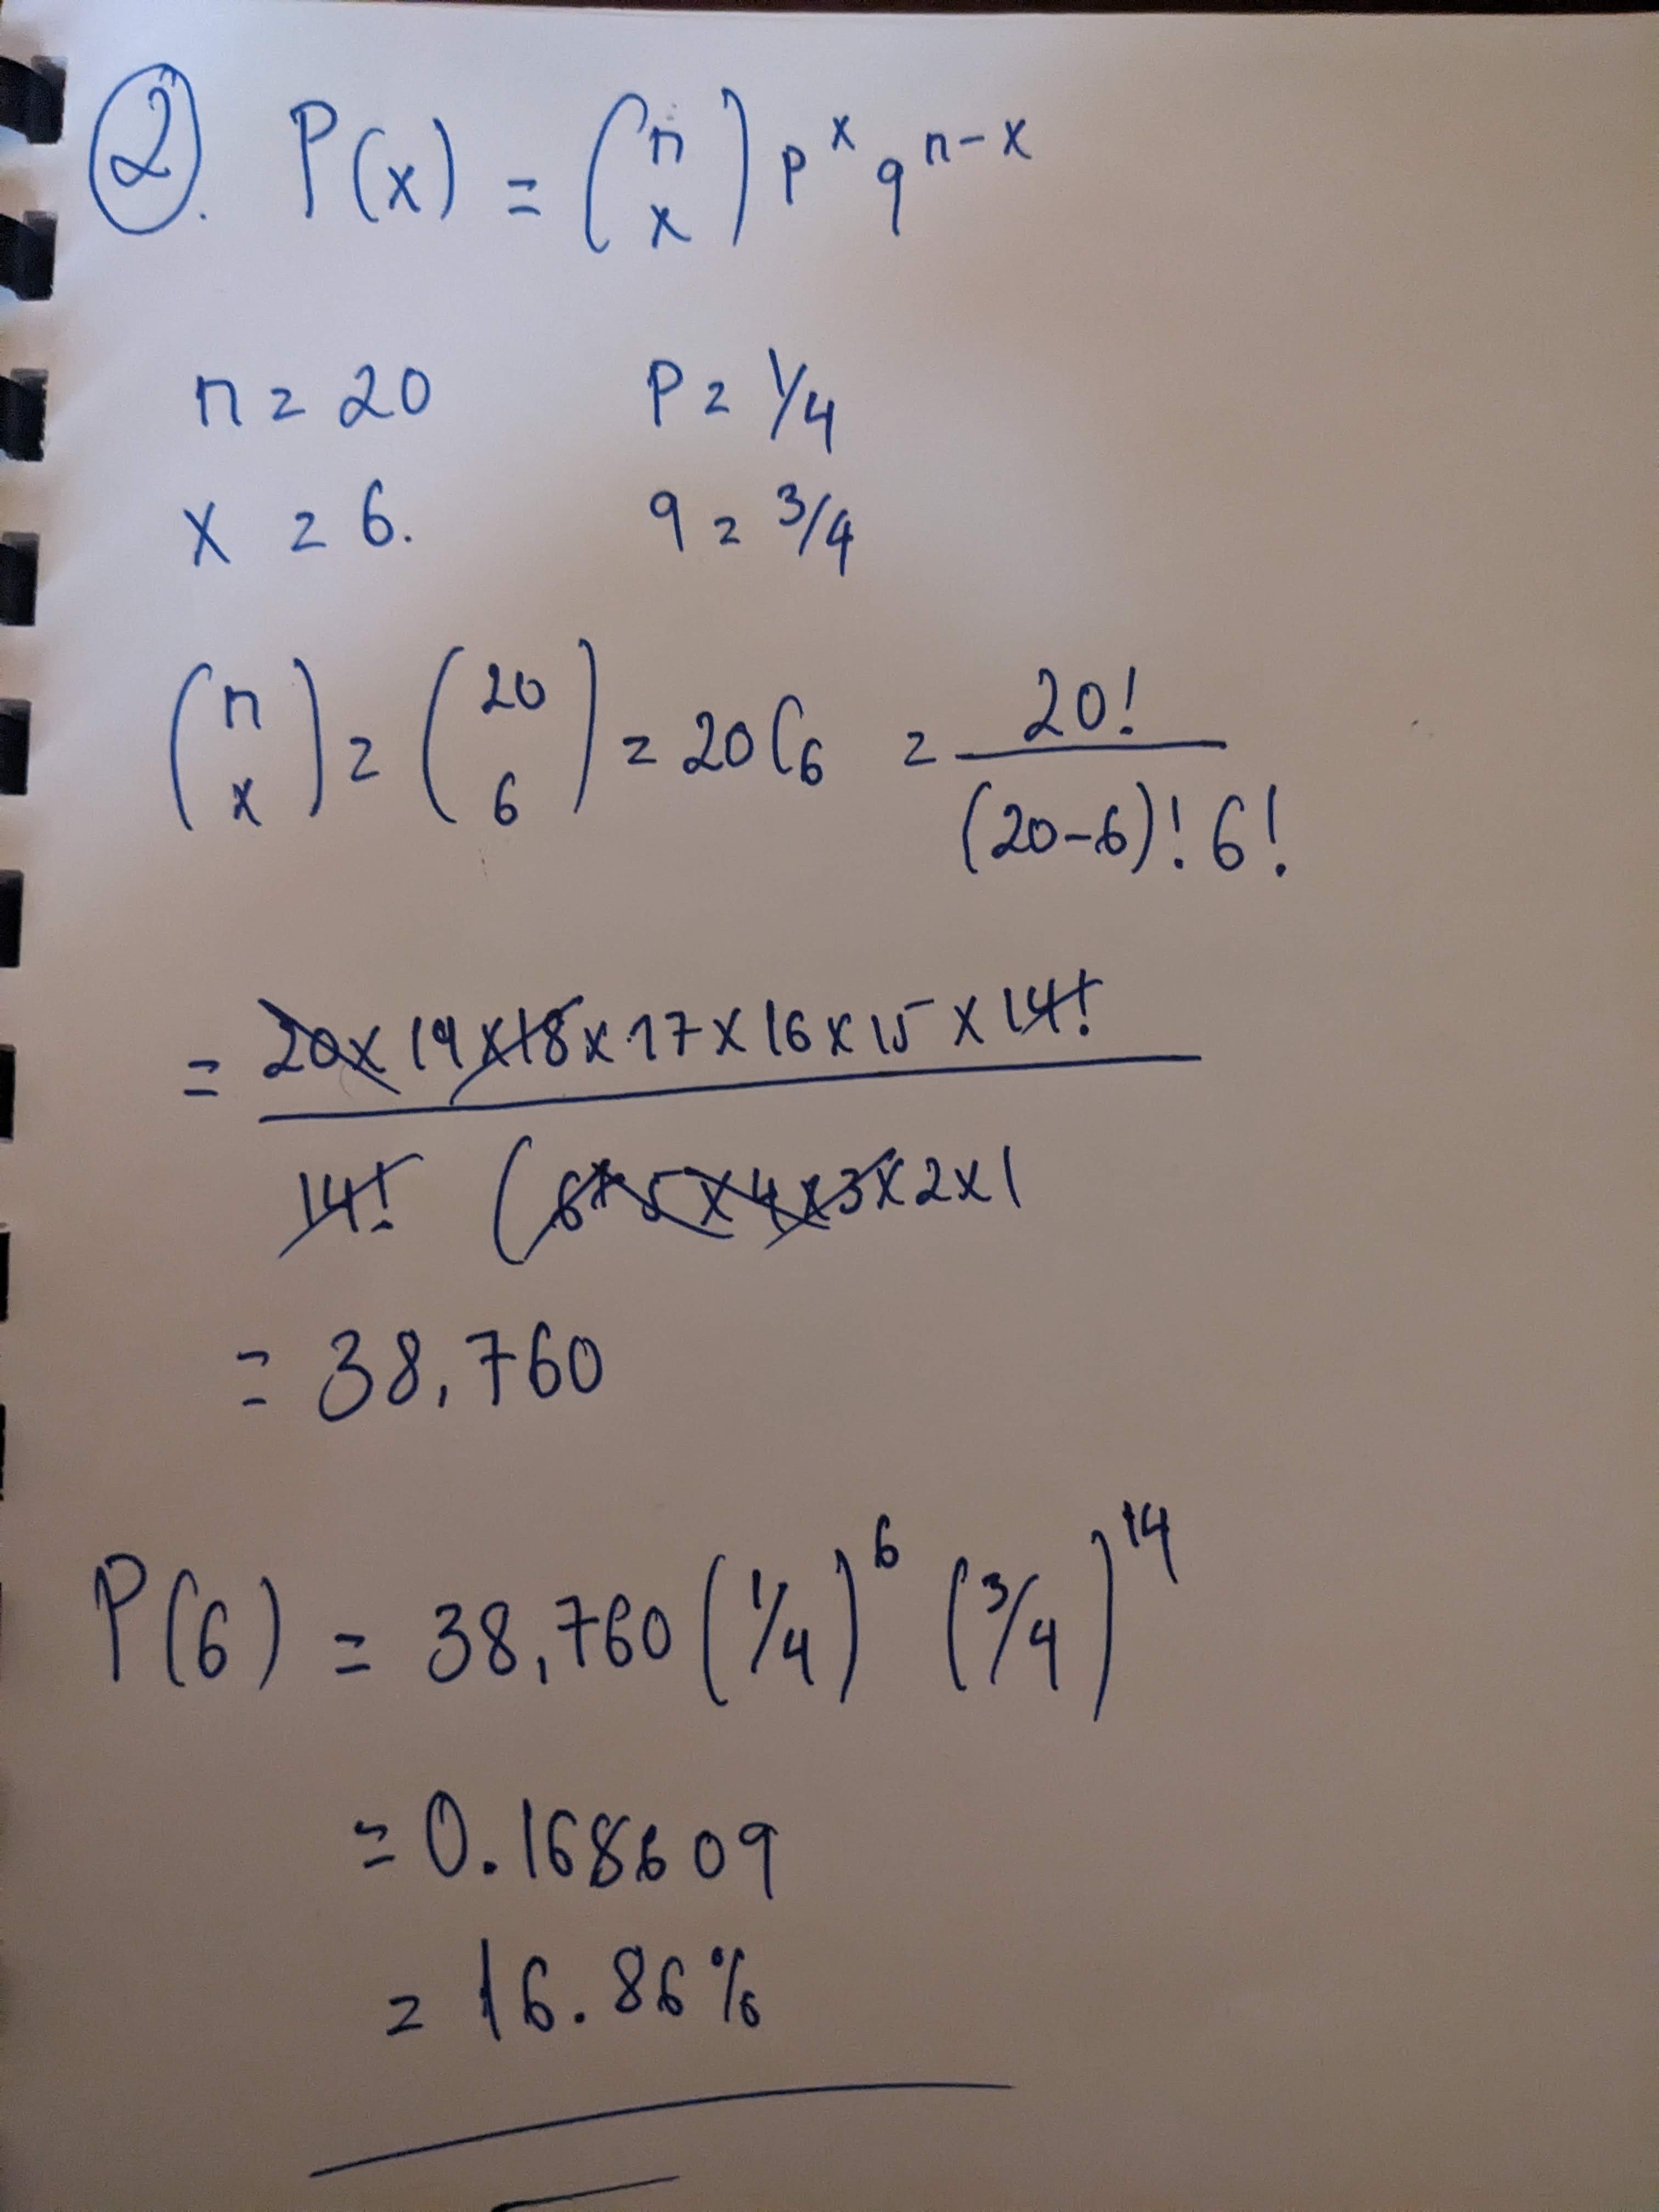 ②. P(x) = (n x) p^x q^(n-x)
n = 20 p = 1/4
x = 6. q = 3/4
(n x) = (20 6) = 20C6 = 20! / (20-6)! 6!
= 20 x 19 x 18 x 17 x 16 x 15 x 14! / 14! (6 x 5 x 4 x 3 x 2 x 1
= 38,760
P(6) = 38,760 (1/4)^6 (3/4)^14
= 0.168609
= 16.86%